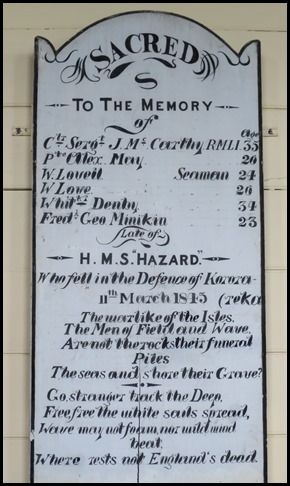 SACRED
S
TO THE MEMORY
of
Age
Clr Sergt J. Mc Carthy R.M.L.I. 35
Pte Alex. May. 20
W. Lovell. Seaman 24
W Lowe. 26
Whitkr Denby 34
Fredk Geo Minikin 23
Late of
H.M.S. "HAZARD."
Who fell in the Defence of Korora-
11th March 1845 (reka
The warlike of the Isles.
The Men of Field and Wave.
Are not the rocks their funeral
Piles
The seas and shore their Grave?
Go, stranger track the Deep.
Free, free the white sails spread,
Wave may not foam, nor wild wind
beat,
Where rests not England's dead.